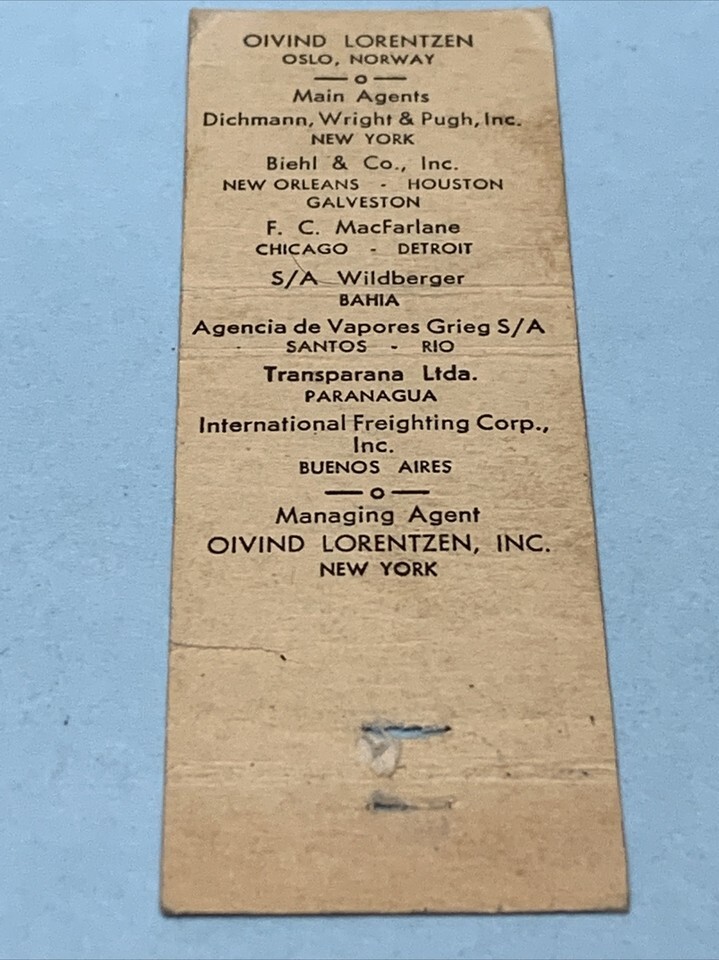 OIVIND LORENTZEN
OSLO, NORWAY
Main Agents
Dichmann, Wright & Pugh, Inc.
NEW YORK
Biehl & Co., Inc.
NEW ORLEANS - HOUSTON
GALVESTON
F. C. MacFarlane
CHICAGO - DETROIT
S/A Wildberger
BAHIA
Agencia de Vapores Grieg S/A
SANTOS - RIO
Transparana Ltda.
PARANAGUA
International Freighting Corp.,
Inc.
BUENOS AIRES
Managing Agent
OIVIND LORENTZEN, INC.
NEW YORK